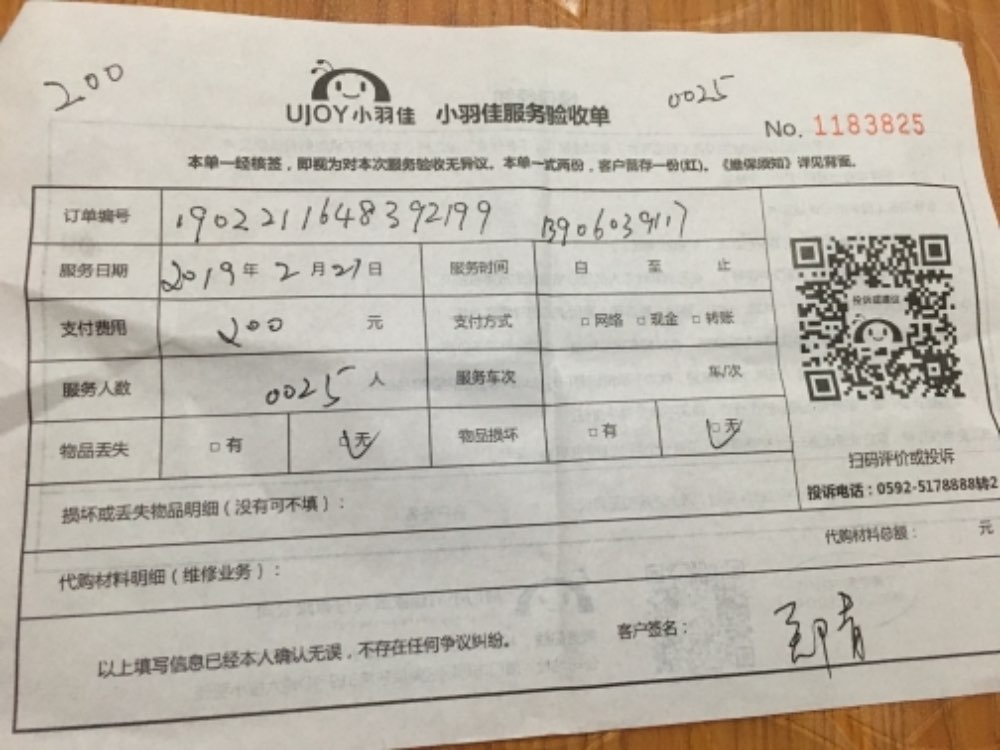 200
0025
UJOY小羽佳 小羽佳服务验收单
No. 1183825
本单一经核签，即视为对本次服务验收无异议。本单一式两份，客户留存一份(红)。《维保须知》详见背面。
订单编号 1902211648392199 B906039117
服务日期 2019年2月21日 服务时间 自 至 止
投诉或建议
支付费用 200 元 支付方式 □网络 □现金 □转账
服务人数 0025 人 服务车次 车/次
物品丢失 □有 □无 物品损坏 □有 □无
扫码评价或投诉
投诉电话：0592-5178888转2
损坏或丢失物品明细（没有可不填）：
代购材料总额： 元
代购材料明细（维修业务）：
以上填写信息已经本人确认无误，不存在任何争议纠纷。 客户签名：